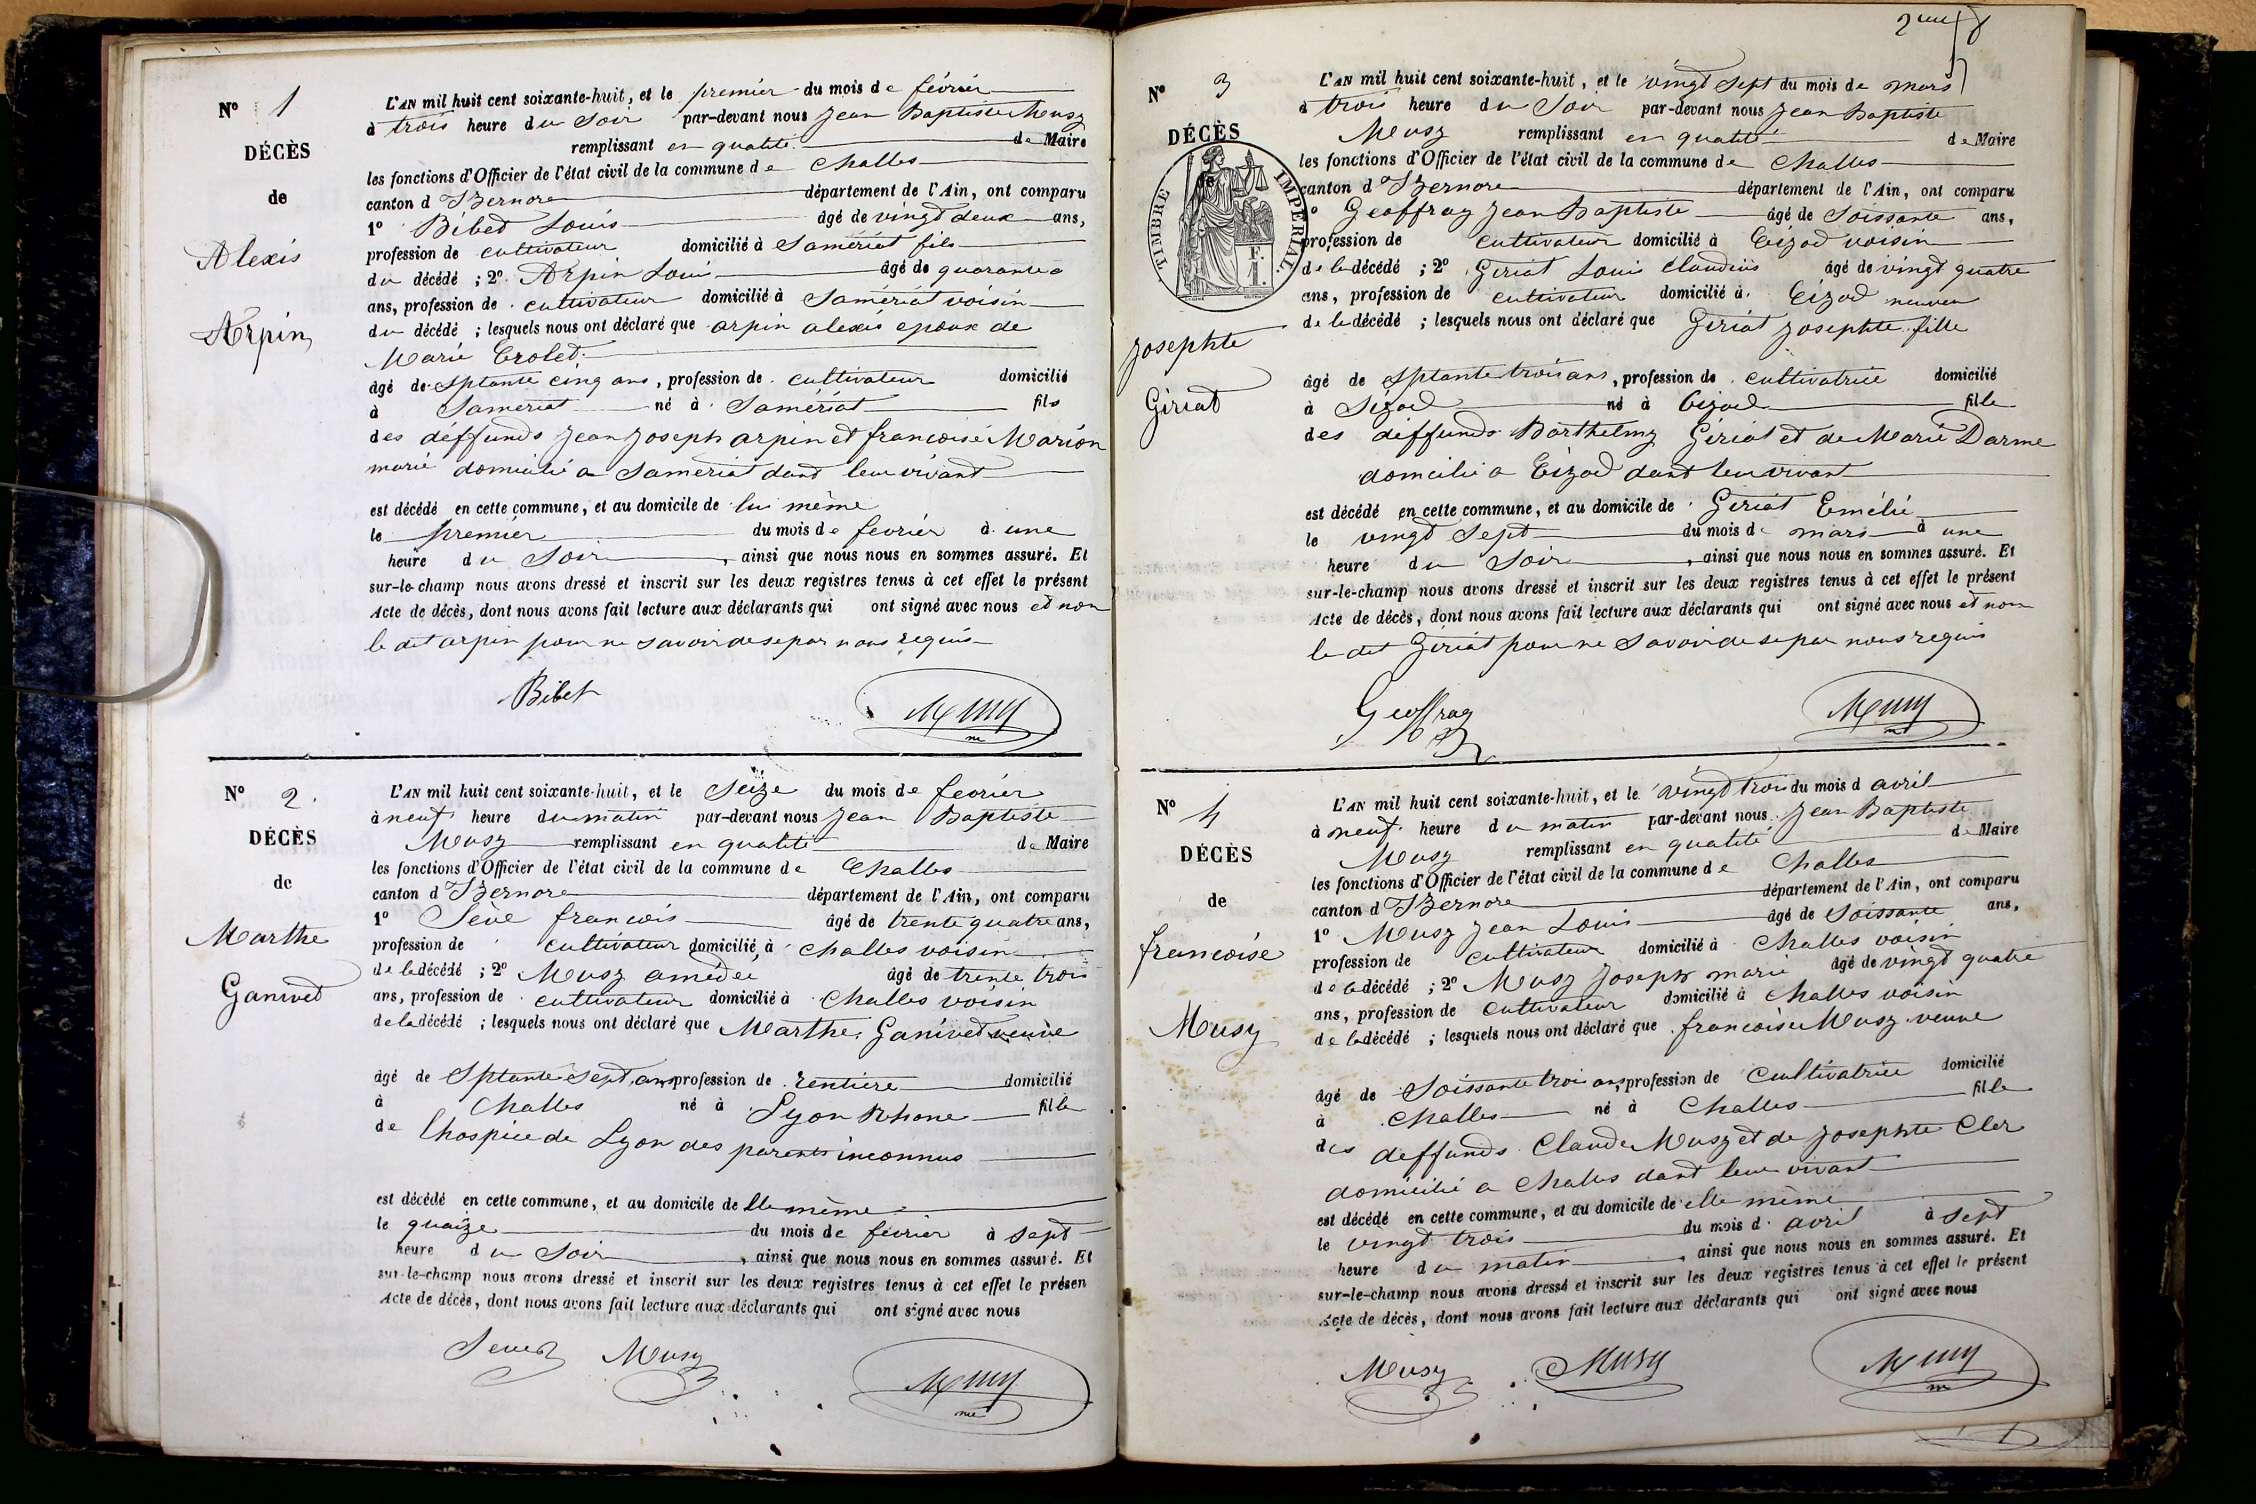 N° 1
DÉCÈS
de
Alexis
Arpin
L'AN mil huit cent soixante-huit, et le premier du mois de février
à trois heure du Soir par-devant nous Jean Baptiste Musy
remplissant en qualité de Maire
les fonctions d'Officier de l'état civil de la commune de Challes
canton d'Izernore département de l'Ain, ont comparu
1° Bibet Louis âgé de vingt deux ans,
profession de cultivateur domicilié à Samériat fils
du décédé ; 2° Arpin Louis âgé de quarante
ans, profession de cultivateur domicilié à Samériat voisin
du décédé ; lesquels nous ont déclaré que arpin alexis epoux de
Marie
âgé de Sptante cinq ans, profession de cultivateur domicilié
à Samériat né à Samériat fils
des déffunds Jean Joseph arpin et francoise Marion
marié domicilié a Sameriat dant leur vivant
est décédé en cette commune, et au domicile de lui même
le premier du mois de fevrier à une
heure du Soir, ainsi que nous nous en sommes assuré. Et
sur-le-champ nous avons dressé et inscrit sur les deux registres tenus à cet effet le présent
Acte de décès, dont nous avons fait lecture aux déclarants qui ont signé avec nous et non
le dit arpin pour ne savoir de se par nous requis
Bibet Musy
N° 2.
DÉCÈS
de
Marthe
Ganivet
L'AN mil huit cent soixante-huit, et le Seize du mois de fevrier
à neuf heure du matin par-devant nous Jean Baptiste
Musy remplissant en qualité de Maire
les fonctions d'Officier de l'état civil de la commune de Challes
canton d'Izernore département de l'Ain, ont comparu
1° Sève francois âgé de trente quatre ans,
profession de cultivateur domicilié à Challes voisin
de la décédé ; 2° Musy amedee âgé de trente trois
ans, profession de cultivateur domicilié à Challes voisin
de la décédé ; lesquels nous ont déclaré que Marthe Ganivet veuve
âgé de Sptante Sept ans profession de rentière domicilié
à Challes né à Lyon Rhone fille
de l'hospice de Lyon des parents inconnus
est décédé en cette commune, et au domicile de Elle même
le quaize du mois de fevrier à Sept
heure du Soir, ainsi que nous nous en sommes assuré. Et
sur-le-champ nous avons dressé et inscrit sur les deux registres tenus à cet effet le présen
Acte de décès, dont nous avons fait lecture aux déclarants qui ont signé avec nous
Musy Musy
N° 3
DÉCÈS
de
TIMBRE IMPÉRIAL.
F.
1.
Josephte
Giriat
L'AN mil huit cent soixante-huit, et le vingt Sept du mois de mars
à trois heure du Soir par-devant nous Jean Baptiste
Musy remplissant en qualité de Maire
les fonctions d'Officier de l'état civil de la commune de Challes
canton d'Izernore département de l'Ain, ont comparu
1° Geoffray Jean Baptiste âgé de Soissante ans,
profession de cultivateur domicilié à Eizod voisin
de la décédé ; 2° Giriat Louis Claudius âgé de vingt quatre
ans, profession de cultivateur domicilié à Eizod neuveu
de la décédé ; lesquels nous ont déclaré que Giriat Josephte fille
âgé de Sptante trois ans, profession de cultivatrice domicilié
à Eizod né à Eizod fille
des deffunds Barthelmy Giriat et de Marie Darme
domicilié a Eizod dant leur vivant
est décédé en cette commune, et au domicile de Giriat Emélie
le vingt Sept du mois de mars à une
heure du Soir, ainsi que nous nous en sommes assuré. Et
sur-le-champ nous avons dressé et inscrit sur les deux registres tenus à cet effet le présent
Acte de décès, dont nous avons fait lecture aux déclarants qui ont signé avec nous et non
le dit Giriat pour ne Savoir de se par nous requis
Geoffray Musy
N° 4
DÉCÈS
de
francoise
Musy
L'AN mil huit cent soixante-huit, et le vingt trois du mois d avril
à neuf heure du matin par-devant nous Jean Baptiste
Musy remplissant en qualité de Maire
les fonctions d'Officier de l'état civil de la commune de Challes
canton d'Izernore département de l'Ain, ont comparu
1° Musy Jean Louis âgé de Soissante ans,
profession de cultivateur domicilié à Challes voisin
de la décédé ; 2° Musy Joseph marie âgé de vingt quatre
ans, profession de cultivateur domicilié à Challes voisin
de la décédé ; lesquels nous ont déclaré que francoise Musy veuve
âgé de Soissante trois ans, profession de Cultivatrice domicilié
à Challes né à Challes fille
des deffunds Claude Musy et de Josephte Cler
domicilié a Challes dant leur vivant
est décédé en cette commune, et au domicile de elle même
le vingt trois du mois d avril à Sept
heure du matin, ainsi que nous nous en sommes assuré. Et
sur-le-champ nous avons dressé et inscrit sur les deux registres tenus à cet effet le présent
Acte de décès, dont nous avons fait lecture aux déclarants qui ont signé avec nous
Musy Musy Musy